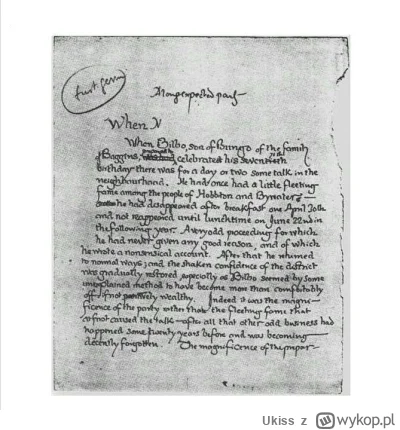 first germ
A long expected party
When
When Bilbo, son of Bungo of the family
of Baggins, celebrated his seventieth
birthday there was for a day or two some talk in the
neighbourhood. He had once had a little fleeting
fame among the people of Hobbiton and Bywater -
he had disappeared after breakfast one April 30th
and not reappeared until lunchtime on June 22nd in
the following year. A very odd proceeding for which
he had never given any good reason, and of which
he wrote a nonsensical account. After that he returned
to normal ways; and the shaken confidence of the district
was gradually restored, especially as Bilbo seemed by some
unexplained method to have become more than comfortably
off, if not positively wealthy. Indeed it was the magni-
ficence of the party rather than the fleeting fame that
at first caused the talk - after all that other odd business had
happened some twenty years before and was becoming
decently forgotten. The magnificence of the prepar-
Ukiss z wykop.pl